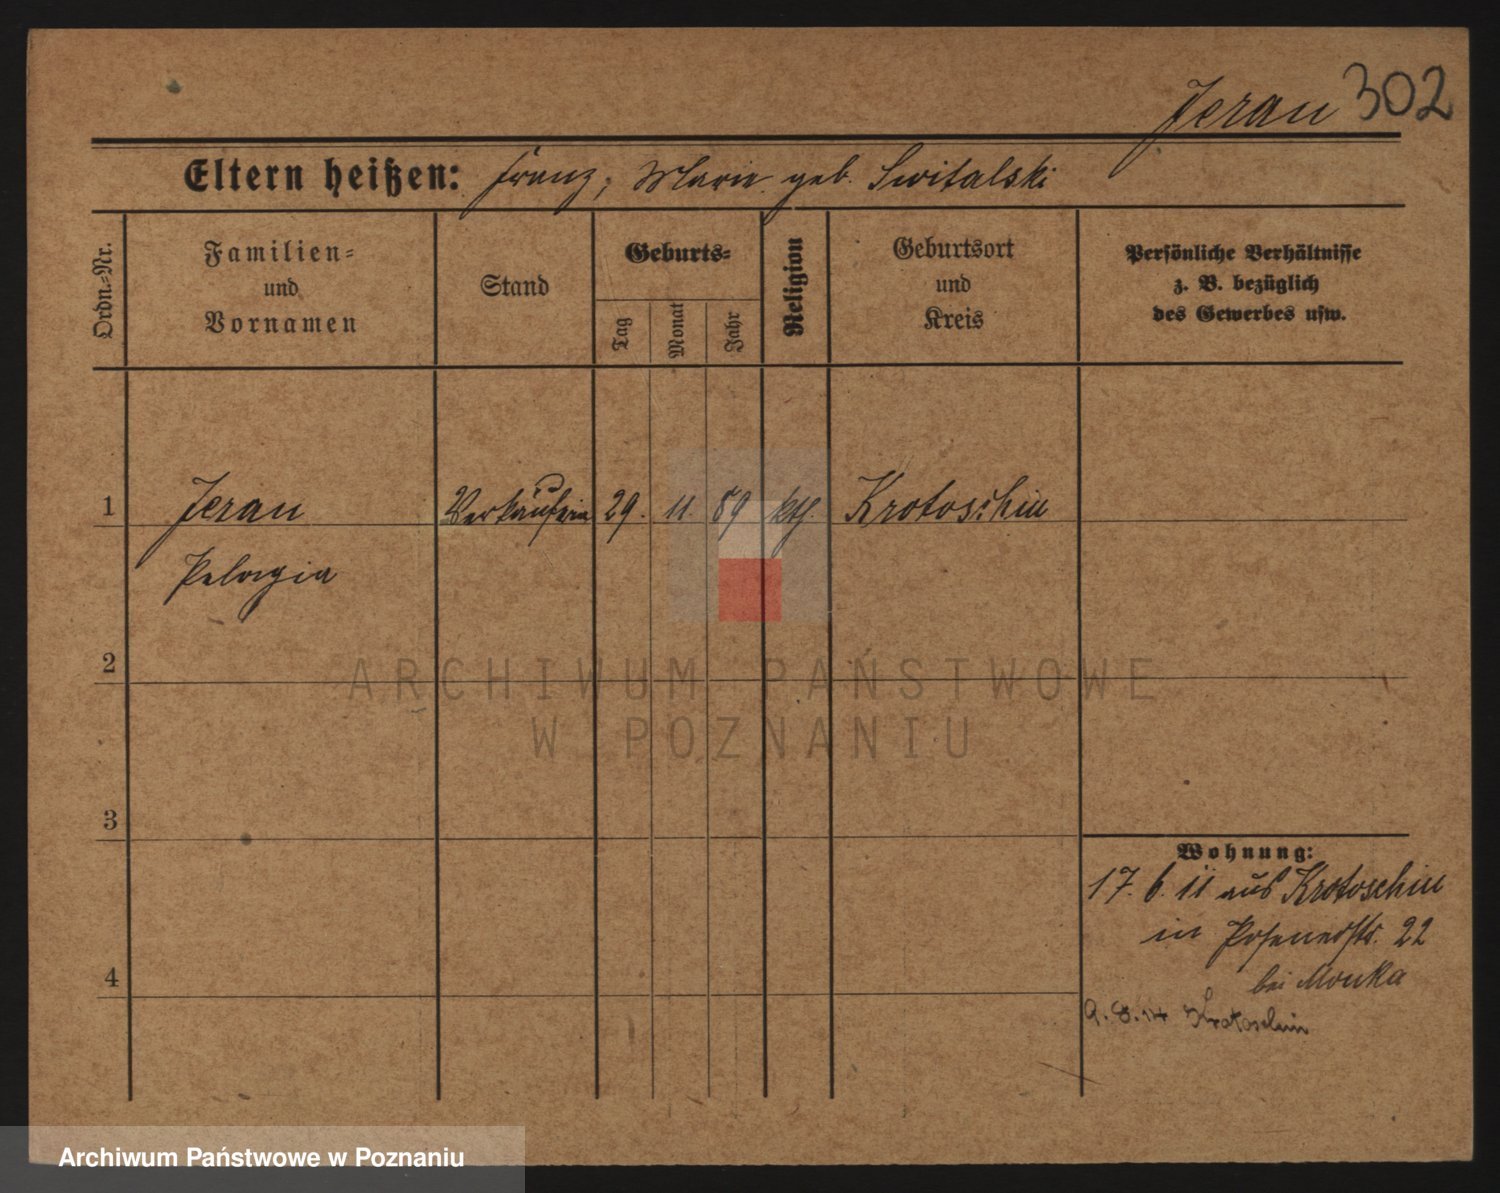 Jerau 302
Eltern heißen: Franz, Marie geb. Switalski
Ordn.-Nr.
Familien-
und
Vornamen
Stand
Geburts-
Tag
Monat
Jahr
Religion
Geburtsort
und
Kreis
Persönliche Verhältnisse
z. B. bezüglich
des Gewerbes usw.
1 Jerau Verkäuferin 29. 11. 89 kth. Krotoschin
Pelagia
2
3
4
Wohnung:
17. 6. 11 aus Krotoschin
in Posenerstr. 22
bei Monka
9. 8. 14 Krotoschin
ARCHIWUM PAŃSTWOWE
W POZNANIU
Archiwum Państwowe w Poznaniu